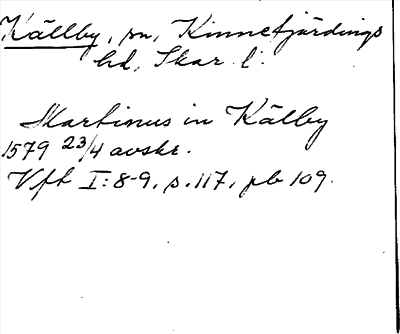 Källby, sn, Kinnefjärdings
hd, Skar. l.
Martinus in Kälby
1579 23/4 avskr.
Vft I:8-9, s.117, pb 109.